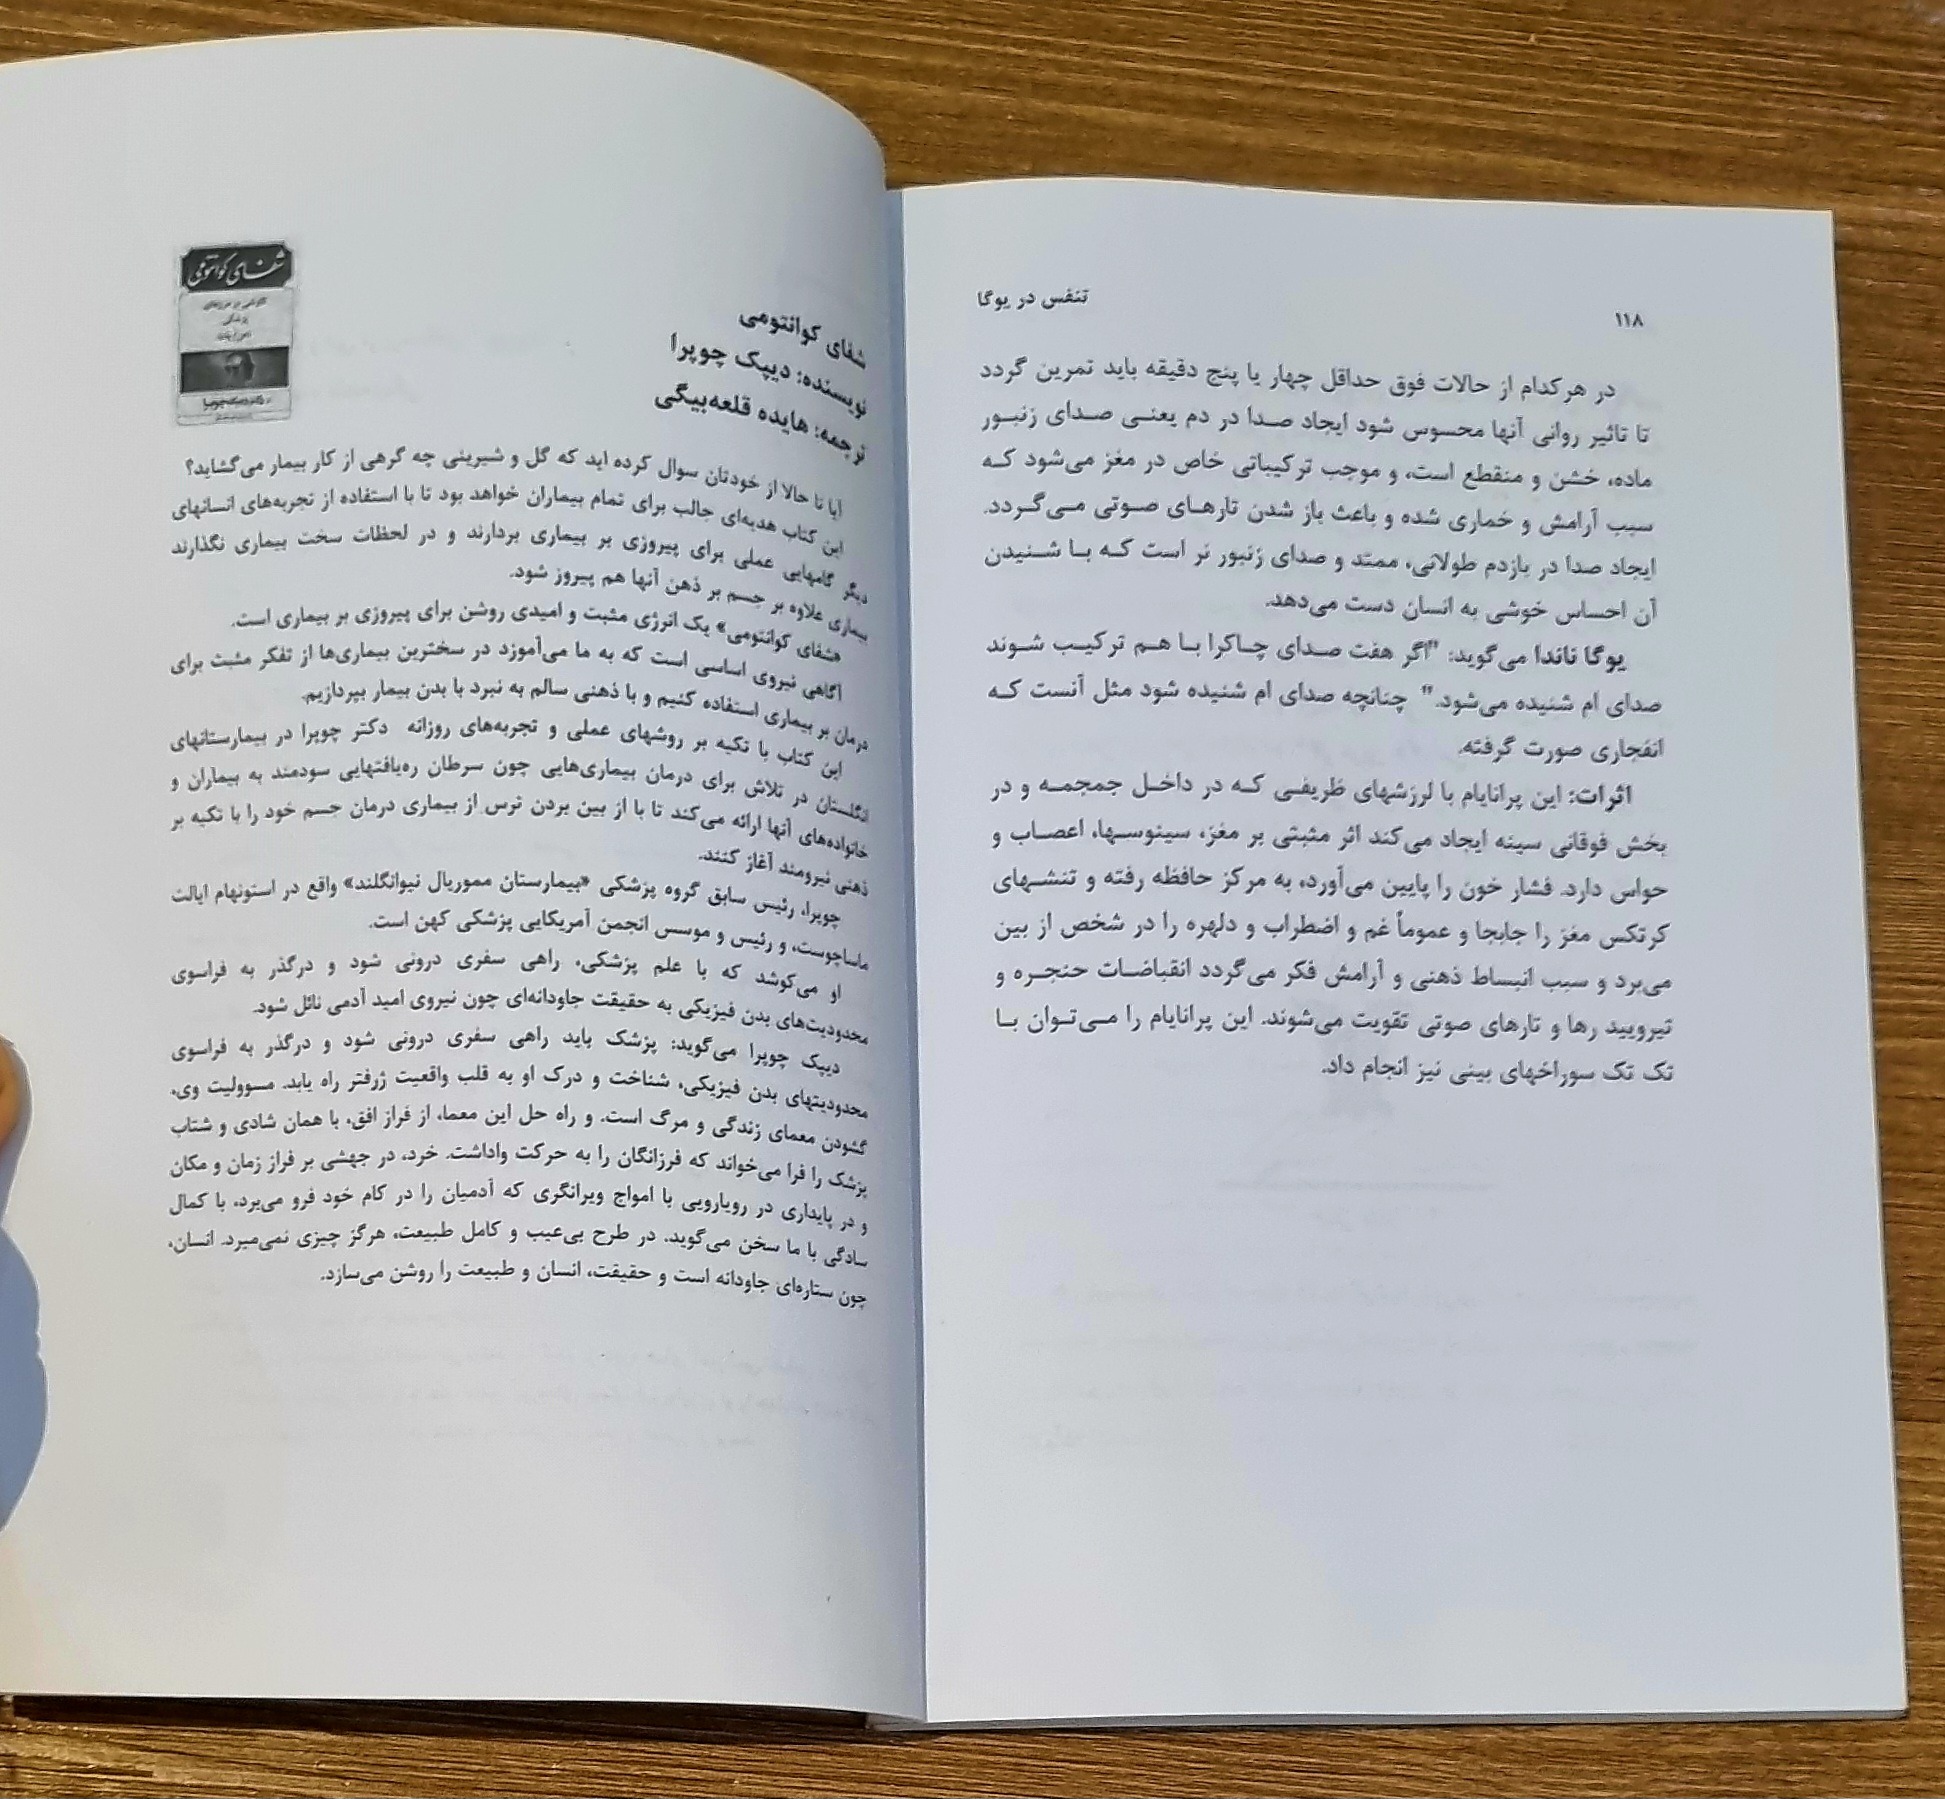 ۱۱۸
تنفس در یوگا
در هرکدام از حالات فوق حداقل چهار یا پنج دقیقه باید تمرین گردد
تا تاثیر روانی آنها محسوس شود ایجاد صدا در دم یعنی صدای زنبور
ماده، خشن و منقطع است، و موجب ترکیباتی خاص در مغز می‌شود که
سبب آرامش و خماری شده و باعث باز شدن تارهای صوتی می‌گردد.
ایجاد صدا در بازدم طولانی، ممتد و صدای زنبور نر است که با شنیدن
آن احساس خوشی به انسان دست می‌دهد.
یوگا ناندا می‌گوید: "اگر هفت صدای چاکرا با هم ترکیب شوند
صدای ام شنیده می‌شود." چنانچه صدای ام شنیده شود مثل آنست که
انفجاری صورت گرفته.
اثرات: این پرانایام با لرزشهای ظریفی که در داخل جمجمه و در
بخش فوقانی سینه ایجاد می‌کند اثر مثبتی بر مغز، سینوسها، اعصاب و
حواس دارد. فشار خون را پایین می‌آورد، به مرکز حافظه رفته و تنشهای
کرتکس مغز را جابجا و عموماً غم و اضطراب و دلهره را در شخص از بین
می‌برد و سبب انبساط ذهنی و آرامش فکر می‌گردد انقباضات حنجره و
تیرویید رها و تارهای صوتی تقویت می‌شوند. این پرانایام را می‌توان با
تک تک سوراخهای بینی نیز انجام داد.
شفای کوانتومی
نویسنده: دیپک چوپرا
ترجمه: هایده قلعه‌بیگی
شفای کوانتومی
کاوشی در مرزهای
پزشکی
ذهن / بدن
آیا تا حالا از خودتان سوال کرده اید که گل و شیرینی چه گرهی از کار بیمار می‌گشاید؟
این کتاب هدیه‌ای جالب برای تمام بیماران خواهد بود تا با استفاده از تجربه‌های انسانهای
دیگر گامهایی عملی برای پیروزی بر بیماری بردارند و در لحظات سخت بیماری نگذارند
بیماری علاوه بر جسم بر ذهن آنها هم پیروز شود.
«شفای کوانتومی» یک انرژی مثبت و امیدی روشن برای پیروزی بر بیماری است.
آگاهی نیروی اساسی است که به ما می‌آموزد در سخترین بیماری‌ها از تفکر مثبت برای
درمان بر بیماری استفاده کنیم و با ذهنی سالم به نبرد با بدن بیمار بپردازیم.
این کتاب با تکیه بر روشهای عملی و تجربه‌های روزانه دکتر چوپرا در بیمارستانهای
انگلستان در تلاش برای درمان بیماری‌هایی چون سرطان ره‌یافتهایی سودمند به بیماران و
خانواده‌های آنها ارائه می‌کند تا با از بین بردن ترس از بیماری درمان جسم خود را با تکیه بر
ذهنی نیرومند آغاز کنند.
چوپرا، رئیس سابق گروه پزشکی «بیمارستان مموریال نیوانگلند» واقع در استونهام ایالت
ماساچوست، و رئیس و موسس انجمن آمریکایی پزشکی کهن است.
او می‌کوشد که با علم پزشکی، راهی سفری درونی شود و درگذر به فراسوی
محدودیت‌های بدن فیزیکی به حقیقت جاودانه‌ای چون نیروی امید آدمی نائل شود.
دیپک چوپرا می‌گوید: پزشک باید راهی سفری درونی شود و درگذر به فراسوی
محدودیتهای بدن فیزیکی، شناخت و درک او به قلب واقعیت ژرفتر راه یابد. مسوولیت وی،
گشودن معمای زندگی و مرگ است. و راه حل این معما، از فراز افق، با همان شادی و شتاب
پزشک را فرا می‌خواند که فرزانگان را به حرکت واداشت. خرد، در جهشی بر فراز زمان و مکان
و در پایداری در رویارویی با امواج ویرانگری که آدمیان را در کام خود فرو می‌برد، با کمال
سادگی با ما سخن می‌گوید. در طرح بی‌عیب و کامل طبیعت، هرگز چیزی نمی‌میرد. انسان،
چون ستاره‌ای جاودانه است و حقیقت، انسان و طبیعت را روشن می‌سازد.